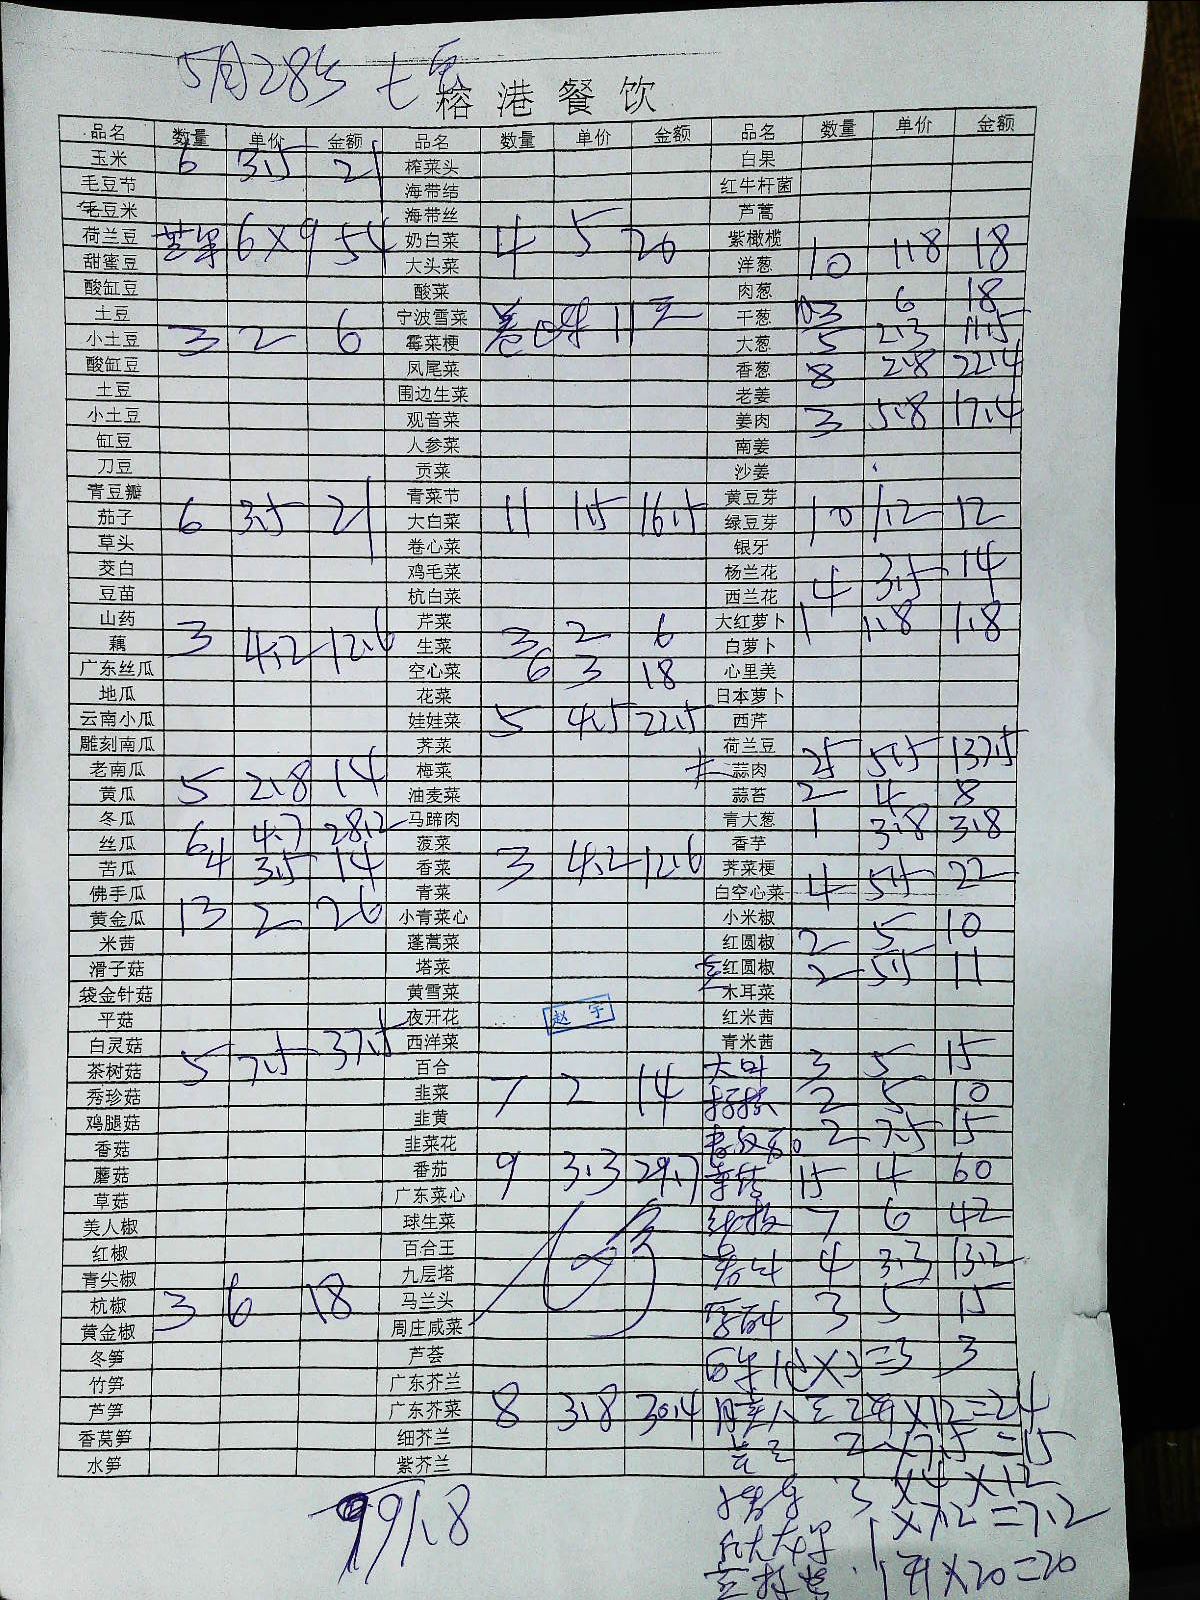 5月28号 七
榕港餐饮
品名 数量 单价 金额 品名 数量 单价 金额 品名 数量 单价 金额
玉米 6 3.5 21 榨菜头 白果
毛豆节 海带结 红牛杆菌
毛豆米 海带丝 芦蒿
荷兰豆 苹果 6×9 54 奶白菜 4 5 20 紫橄榄
甜蜜豆 大头菜 洋葱 10 1.8 18
酸缸豆 酸菜 肉葱
土豆 宁波雪菜 干葱 3 6 18
小土豆 3 2 6 霉菜梗 大葱 5 2.3 11.5
酸缸豆 凤尾菜 香葱 8 2.8 22.4
土豆 围边生菜 老姜
小土豆 观音菜 姜肉 3 5.8 17.4
缸豆 人参菜 南姜
刀豆 贡菜 沙姜
青豆瓣 青菜节 黄豆芽
茄子 6 3.5 21 大白菜 11 1.5 16.5 绿豆芽 10 1.2 12
草头 卷心菜 银牙
茭白 鸡毛菜 杨兰花
豆苗 杭白菜 西兰花 4 3.5 14
山药 芹菜 大红萝卜
藕 3 4.2 12.6 生菜 3 2 6 白萝卜 1 1.8 1.8
广东丝瓜 空心菜 6 3 18 心里美
地瓜 花菜 日本萝卜
云南小瓜 娃娃菜 5 4.5 22.5 西芹
雕刻南瓜 荠菜 荷兰豆
老南瓜 梅菜 蒜肉 25 5.5 137.5
黄瓜 5 2.8 14 油麦菜 蒜苔 2 4 8
冬瓜 马蹄肉 青大葱 1 3.8 3.8
丝瓜 6 4.7 28.2 菠菜 香芋
苦瓜 4 3.5 14 香菜 3 4.2 12.6 荠菜梗
佛手瓜 青菜 白空心菜 4 5.5 22
黄金瓜 13 2 26 小青菜心 小米椒
米茜 蓬蒿菜 红圆椒 2 5 10
滑子菇 塔菜 红圆椒 2 5.5 11
袋金针菇 黄雪菜 木耳菜
平菇 夜开花 赵宇 红米茜
白灵菇 西洋菜 青米茜
茶树菇 5 7.5 37.5 百合 大叶 3 5 15
秀珍菇 韭菜 7 2 14 2 5 10
鸡腿菇 韭黄 2 7.5 15
香菇 韭菜花
蘑菇 番茄 9 3.3 29.7 15 4 60
草菇 广东菜心
美人椒 球生菜 7 6 42
红椒 百合王 4 3.3 13.2
青尖椒 九层塔
杭椒 3 6 18 马兰头 3 5 15
黄金椒 周庄咸菜
冬笋 芦荟 ×3=3 3
竹笋 广东芥兰
芦笋 广东芥菜 8 3.8 30.4 ×12=24
香莴笋 细芥兰 2×7.5=15
水笋 紫芥兰
991.8
3×4×12
1×7.2=7.2
1×20=20